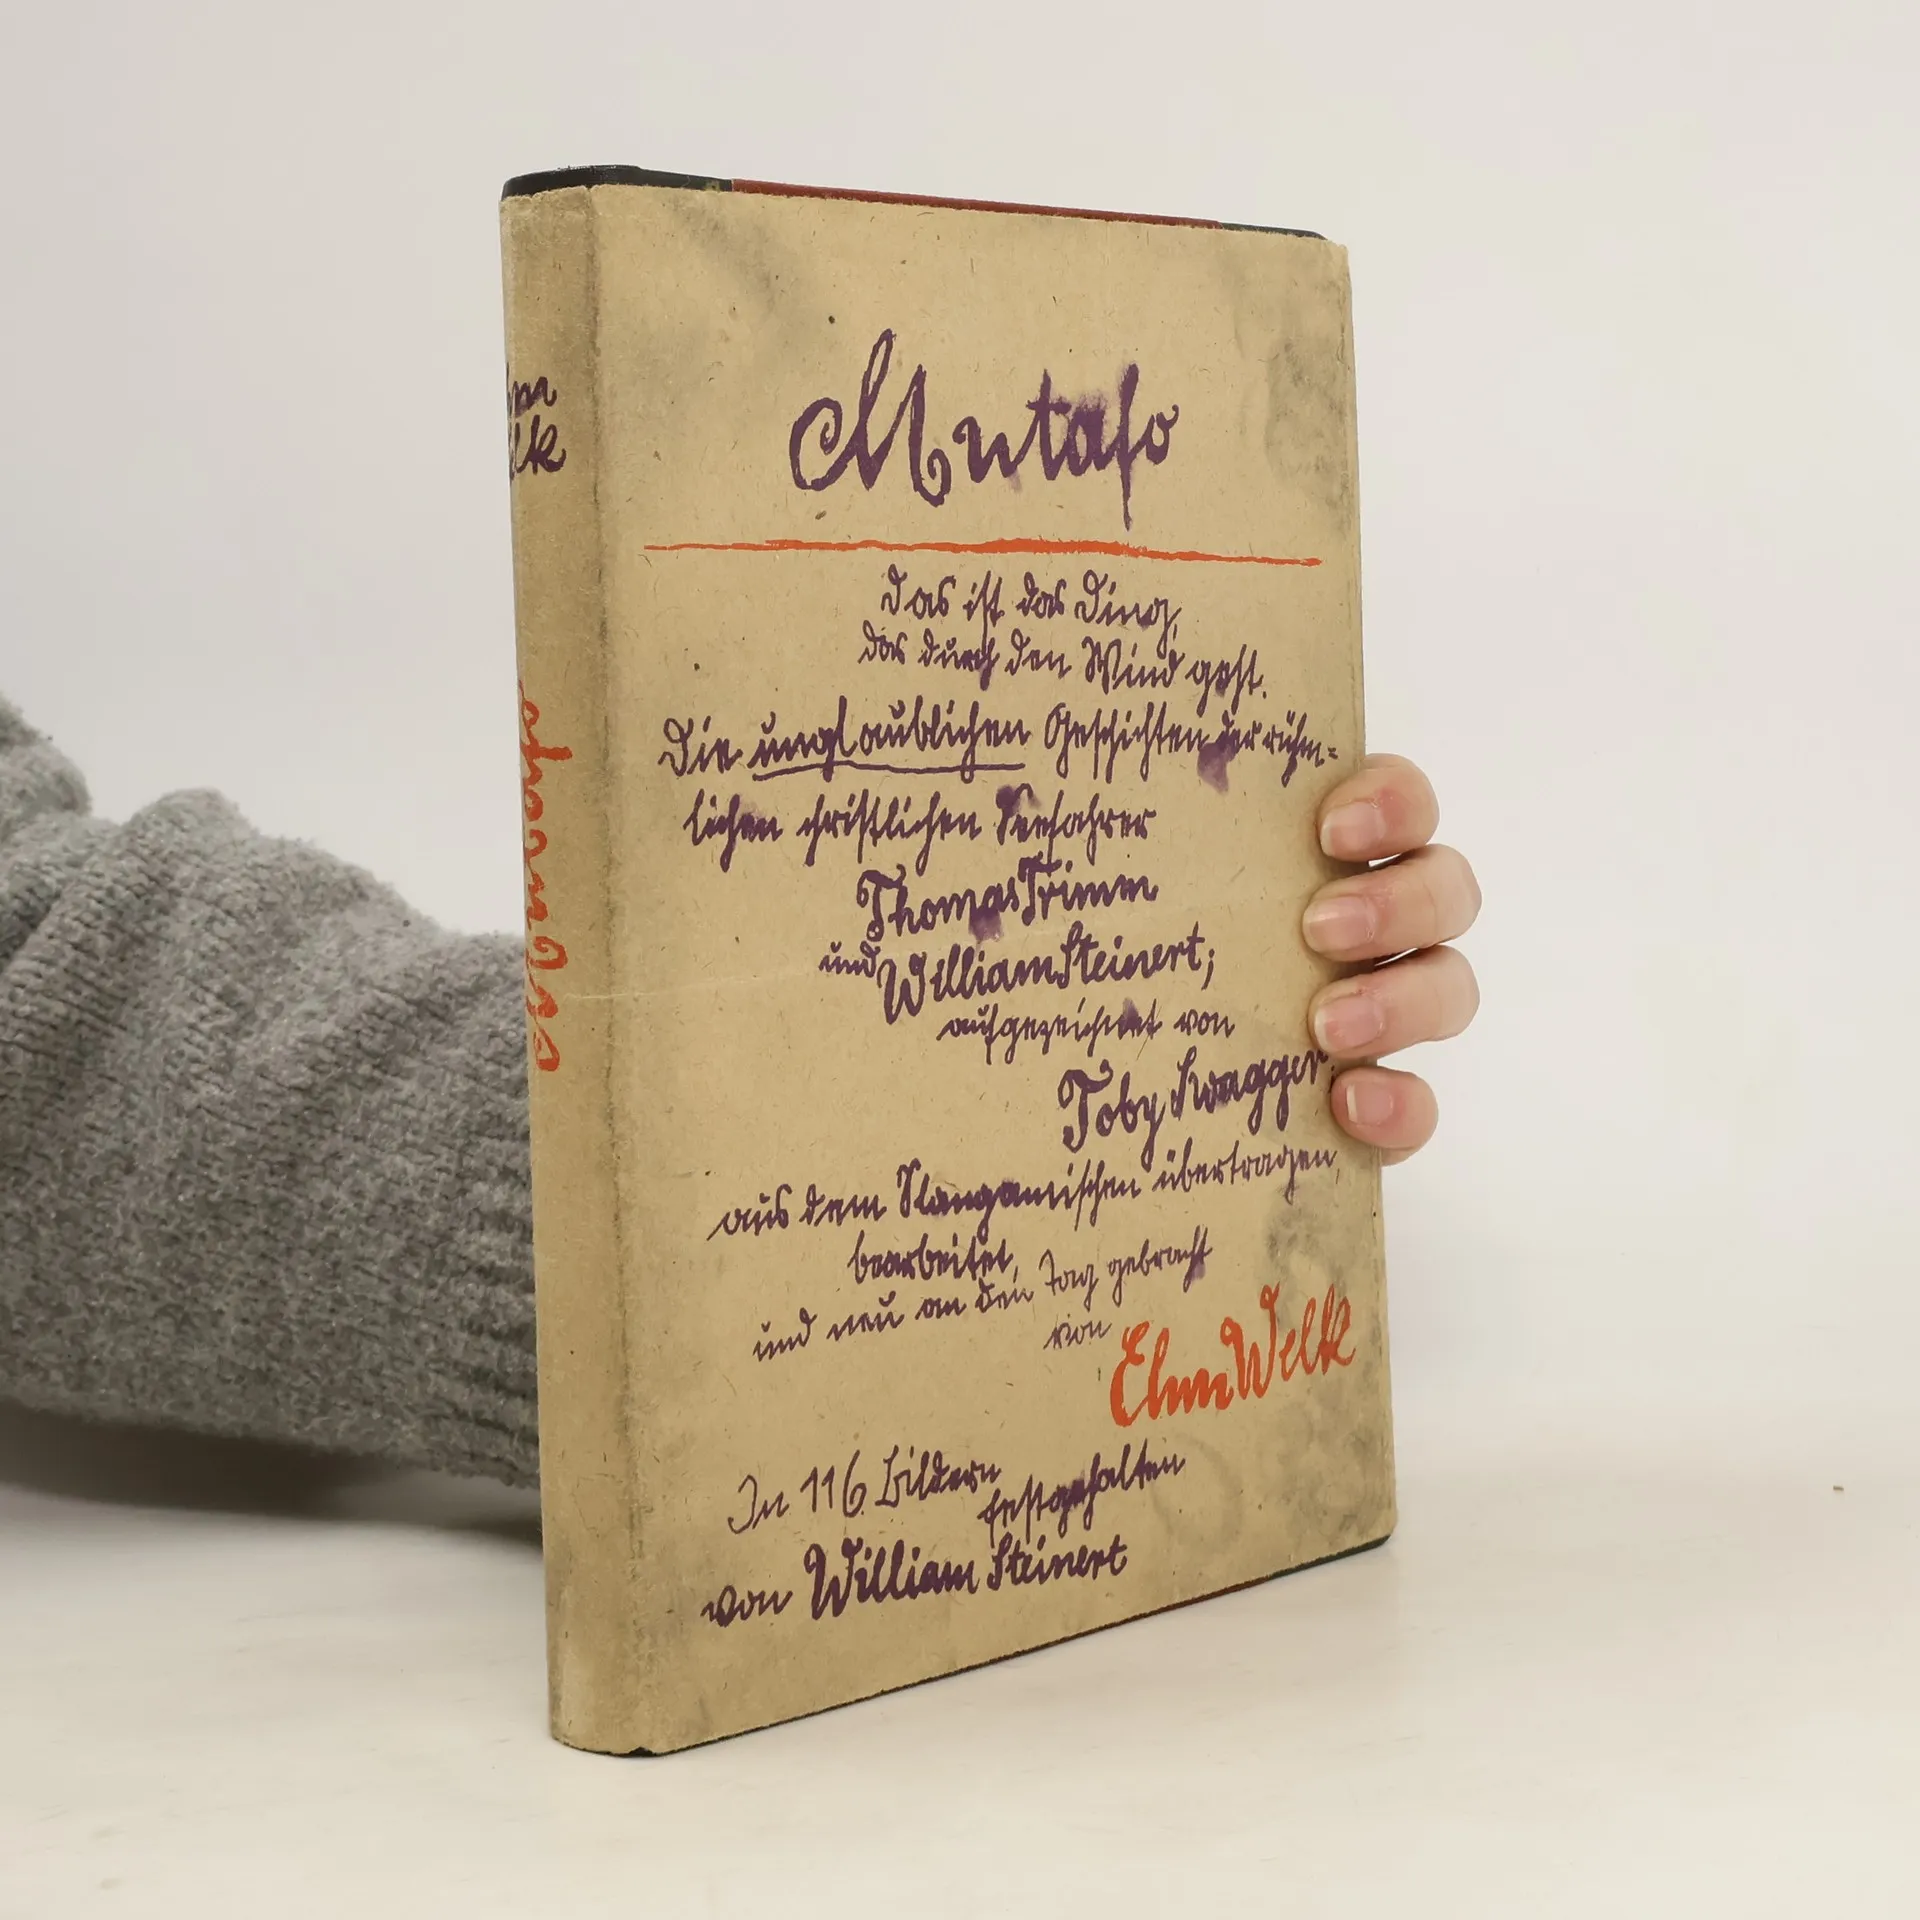 Mutafo
Das ist das Ding,
das durch den Wind geht.
Die unglaublichen Geschichten der rühm=
lichen christlichen Seefahrer
Thomas Trimm
und William Steinert;
aufgezeichnet von
Toby Swagger.
aus dem Slangamischen übertragen,
bearbeitet,
und neu an den Tag gebracht
von Elm Welk
In 116 Bildern
festgehalten
von William Steinert